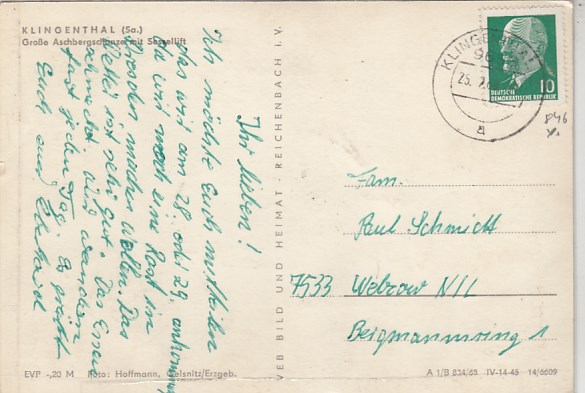 KLINGENTHAL (Sa.)
Große Aschbergschanze mit Sessellift
Ihr lieben!
Ich möchte Euch mitteilen
das wir am 28. od. 29. ankommen
da wir noch eine Rast in
Dresden machen wollen. Das
Wetter ist sehr gut. Das Essen
schmeckt und wandern
fast jeden Tag. Es grüßt
Euch
EVP -,20 M Foto: Hoffmann, Oelsnitz/Erzgeb.
VEB BILD UND HEIMAT · REICHENBACH I. V.
KLINGENTHAL
DEUTSCHE
DEMOKRATISCHE REPUBLIK
10
a
Fam.
Paul Schmidt
7533 Welzow N/L
Bergmannsring 1
A 1/B 834/68 IV-14-45 14/6609